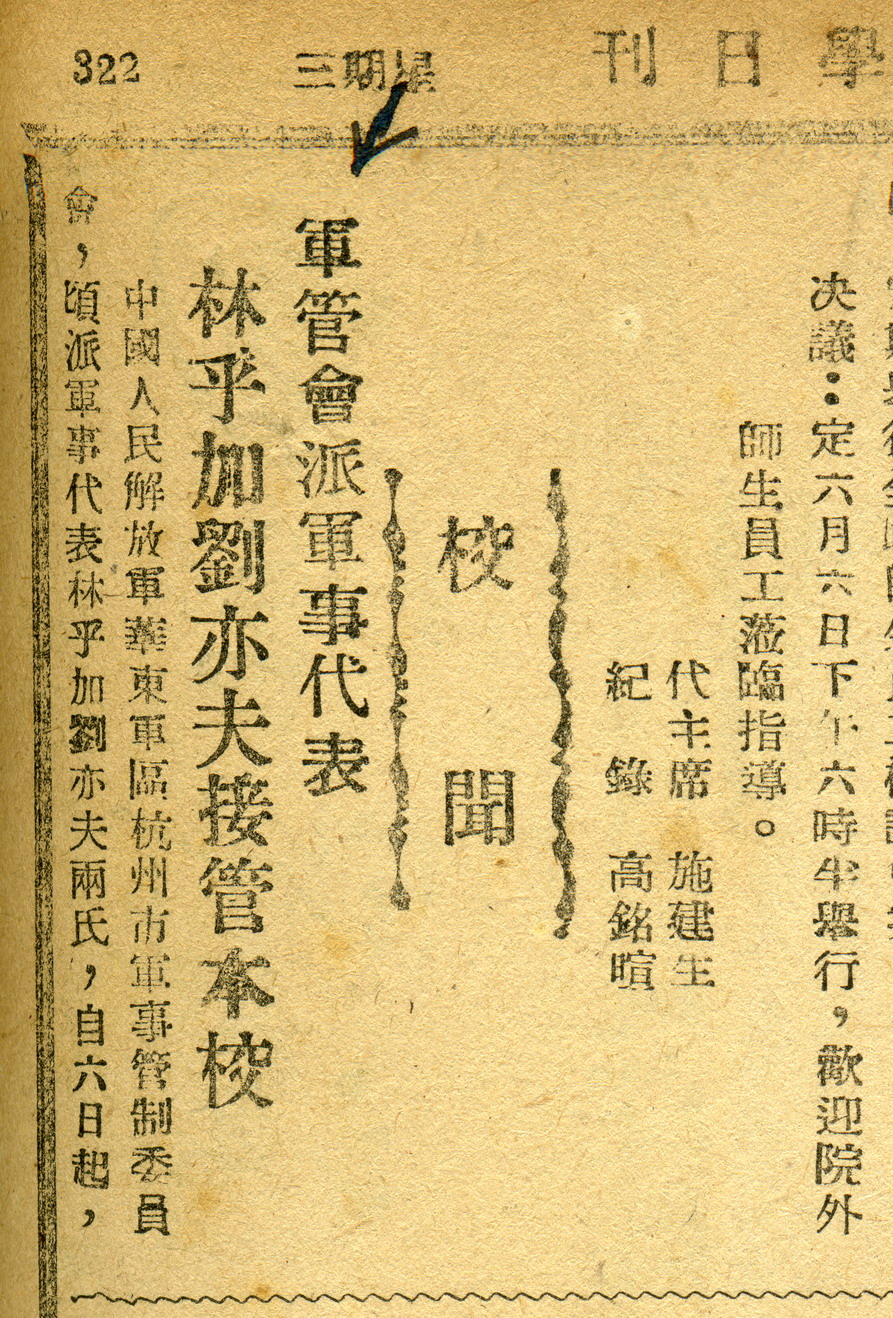 學日刊
星期三
322
决議：定六月六日下午六時半舉行，歡迎院外
師生員工蒞臨指導。
代主席　施建生
紀　錄　高銘暄
校聞
軍管會派軍事代表
林乎加劉亦夫接管本校
中國人民解放軍華東軍區杭州市軍事管制委員
會，頃派軍事代表林乎加劉亦夫兩氏，自六日起，